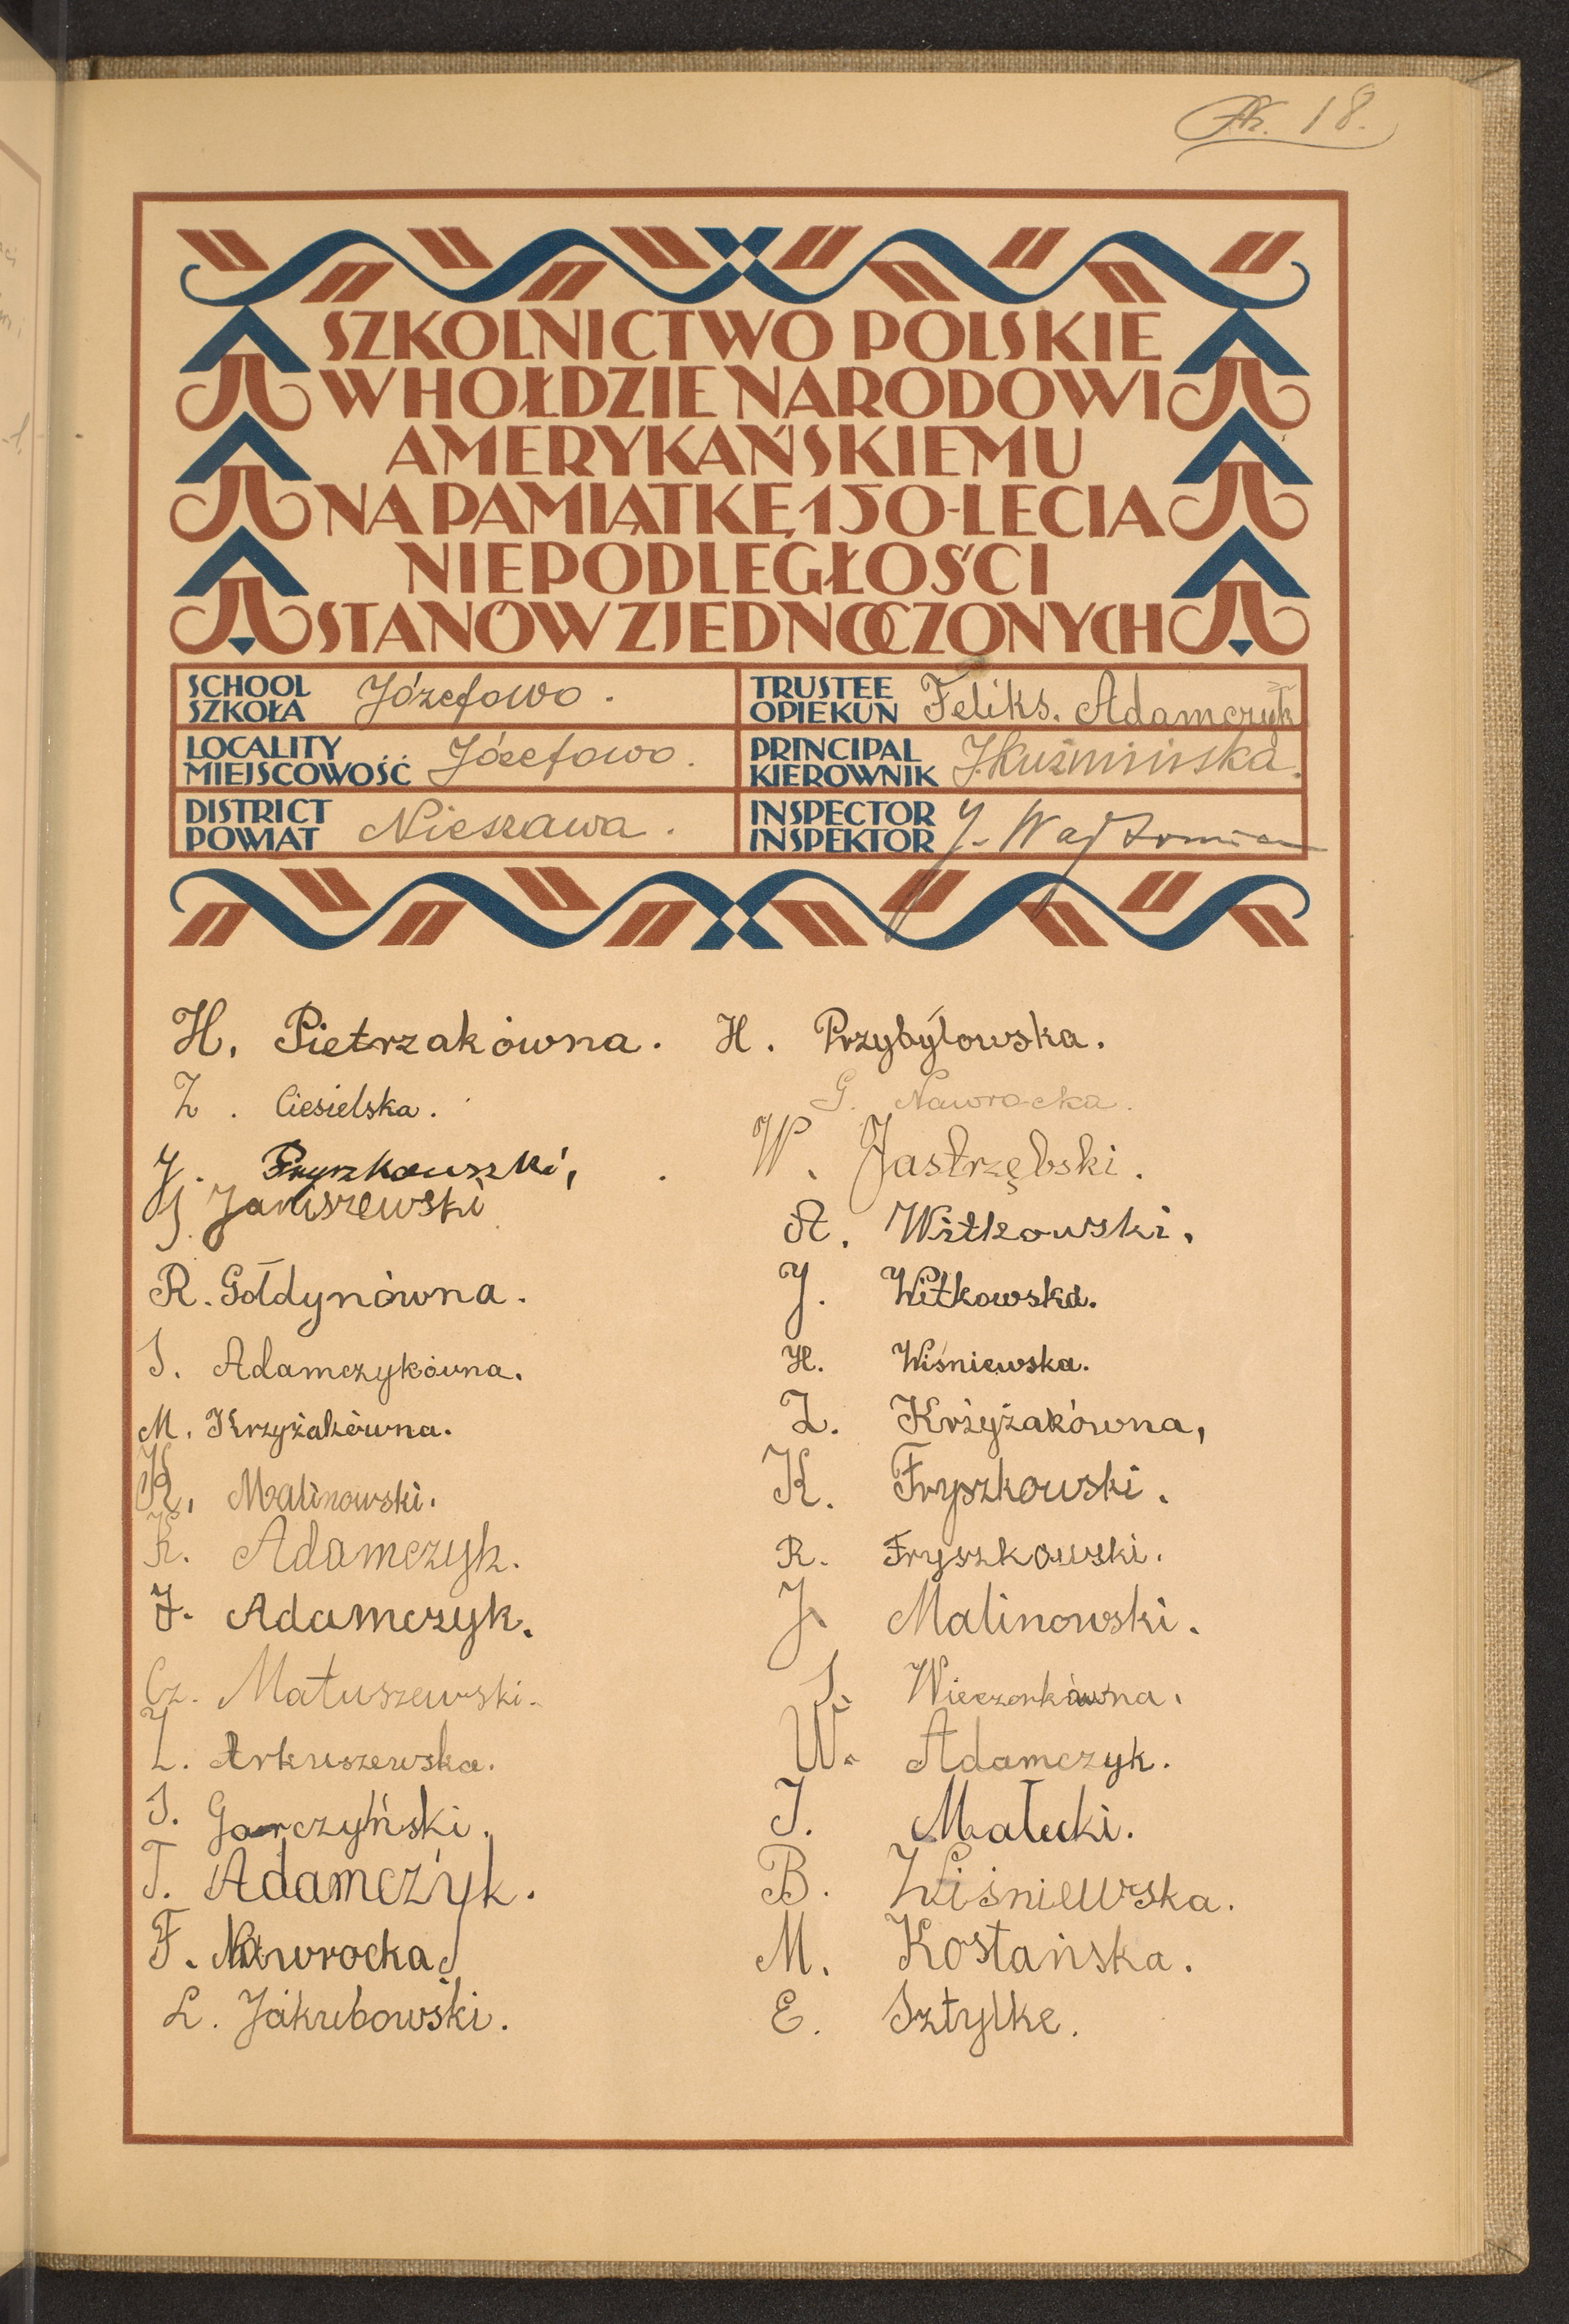 18.
SZKOLNICTWO POLSKIE
W HOŁDZIE NARODOWI
AMERYKAŃSKIEMU
NA PAMIĄTKĘ 150-LECIA
NIEPODLEGŁOŚCI
STANÓW ZJEDNOCZONYCH
SCHOOL
SZKOŁA
Józefowo.
TRUSTEE
OPIEKUN
Feliks. Adamczyk
LOCALITY
MIEJSCOWOŚĆ
Józefowo.
PRINCIPAL
KIEROWNIK
J.Kuźmińska.
DISTRICT
POWIAT
Nieszawa.
INSPECTOR
INSPEKTOR
H. Pietrzakówna.
Z. Ciesielska.
J. Fryszkowszki,
J. Janiszewski
R. Gołdynówna.
I. Adamczykówna.
M. Krzyżakówna.
K. Malinowski.
K. Adamczyk.
J. Adamczyk.
Cz. Matuszewski.
Z. Arkuszewska.
I. Garczyński.
T. Adamczyk.
F. Nawrocka.
L. Jakubowski.
H. Przybyłowska.
G. Nawrocka.
W. Jastrzębski.
A. Witkowski.
J. Witkowska.
H. Wiśniewska.
Z. Krżyżakówna,
K. Fryszkowski.
R. Fryszkowski.
J. Malinowski.
I. Wieczorkówna.
W. Adamczyk.
J. Małecki.
B. Wiśniewska.
M. Kostańska.
E. Sztylke.